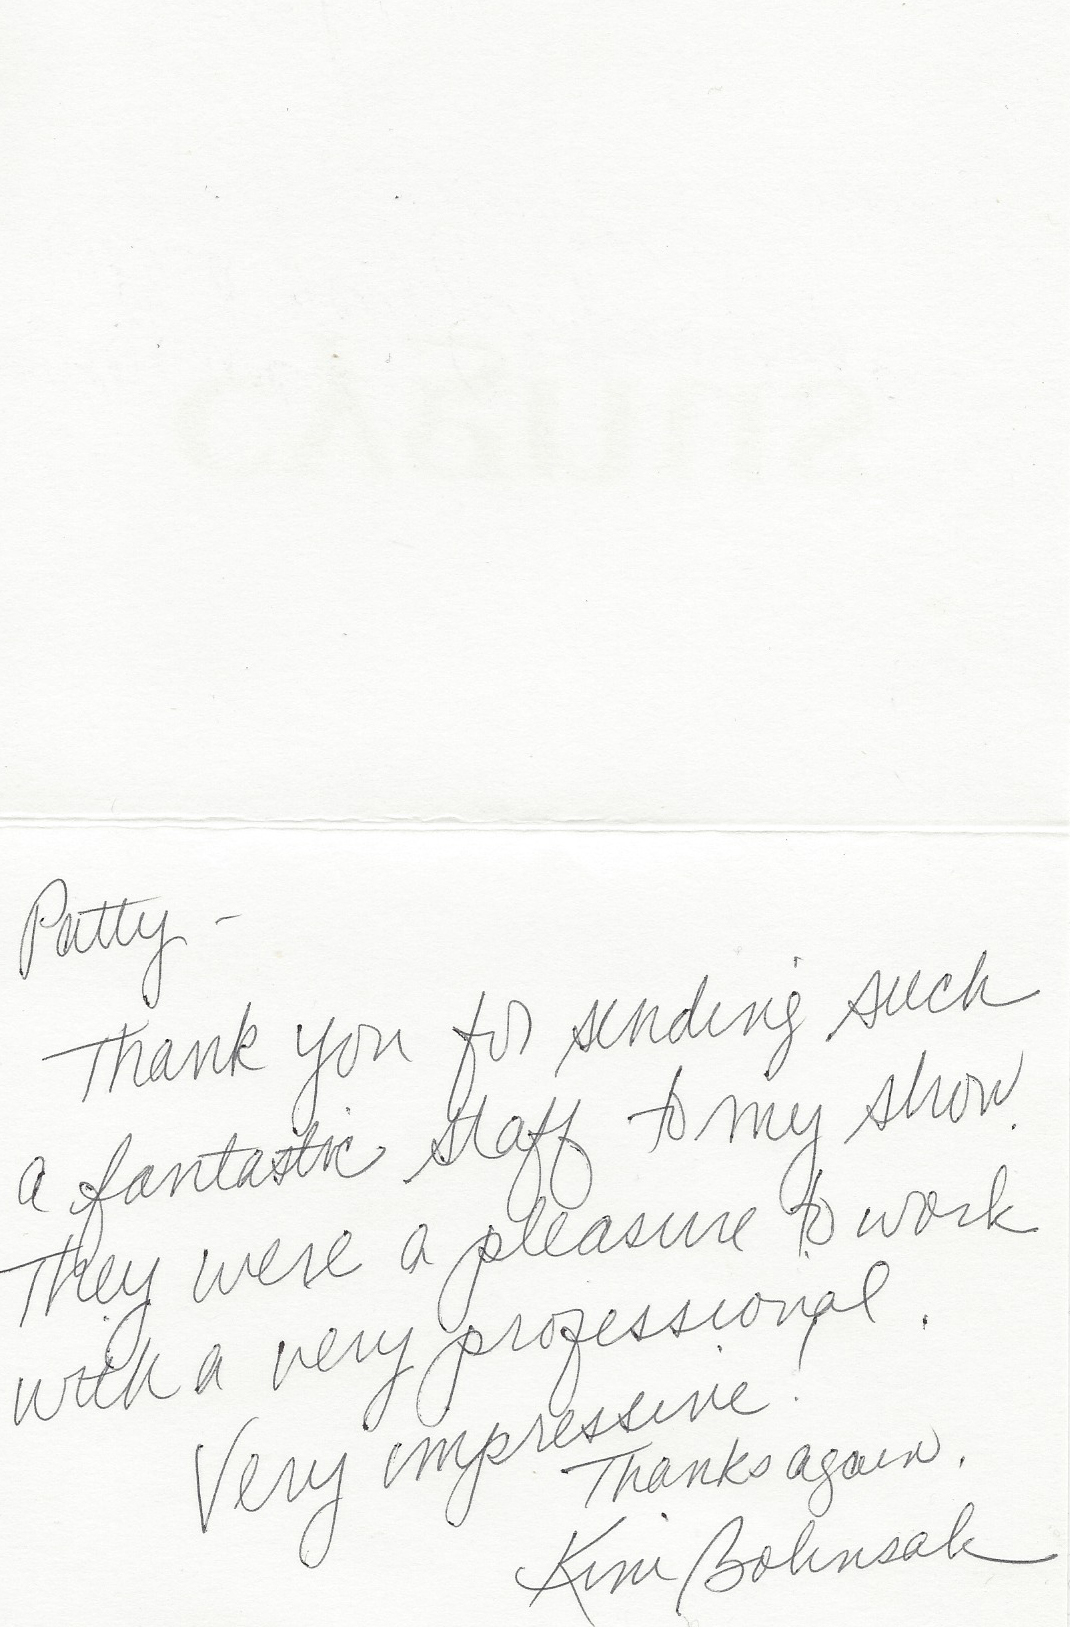 Patty -
Thank you for sending such
a fantastic staff to my show.
They were a pleasure to work
with a very professional.
Very impressive!
Thanks again.
Kim Bohnsak